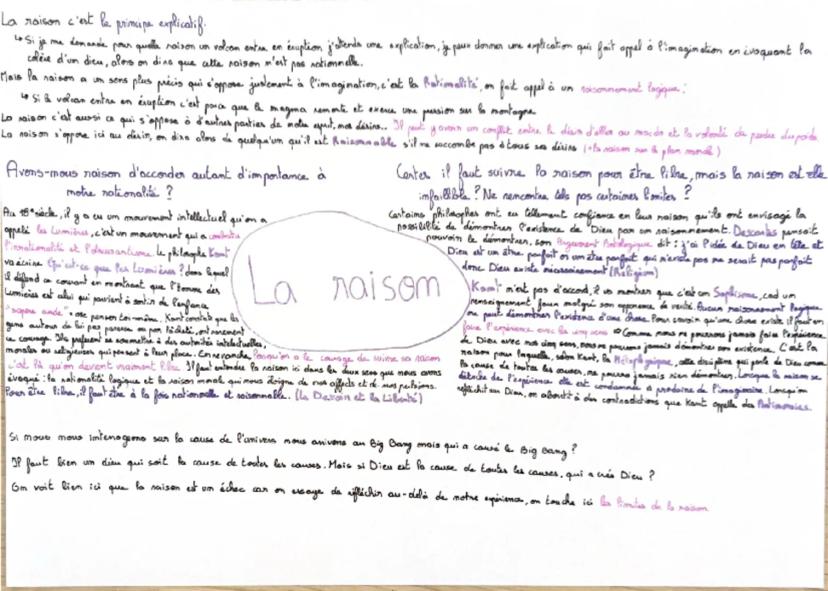 La raison c'est le principe explicatif.
↳ Si je me demande pour quelle raison un volcan entre en éruption j'attends une explication, je peux donner une explication qui fait appel à l'imagination en évoquant la
colère d'un dieu, alors on dira que cette raison n'est pas rationnelle.
Mais la raison a un sens plus précis qui s'oppose justement à l'imagination, c'est la Rationalité, on fait appel à un raisonnement logique.
↳ Si le volcan entre en éruption c'est parce que le magma remonte et exerce une pression sur la montagne
La raison c'est aussi ce qui s'oppose à d'autres parties de notre esprit, nos désirs. Il peut y avoir un conflit entre le désir d'aller au macdo et la volonté de perdre du poids
La raison s'oppose ici au désir, on dira alors de quelqu'un qu'il est Raisonnable s'il ne succombe pas à tous ses désirs (+ la raison sur le plan moral)
Avons-nous raison d'accorder autant d'importance à
notre rationalité ?
Au 18e siècle, il y a eu un mouvement intellectuel qu'on a
appelé les Lumières, c'est un mouvement qui a combattu
l'irrationalité et l'obscurantisme. Le philosophe Kant
va écrire Qu'est-ce que les Lumières ? dans lequel
il défend ce courant en montrant que l'Homme des
Lumières est celui qui parvient à sortir de l'enfance
"sapere aude" = ose penser toi-même. Kant constate que les
gens autour de lui par paresse ou par lâcheté, ont rarement
ce courage. Ils préfèrent se soumettre à des autorités intellectuelles,
morales ou religieuses qui pensent à leur place. En revanche, lorsqu'on a le courage de suivre sa raison
c'est là qu'on devient vraiment libre. Il faut entendre la raison ici dans les deux sens que nous avons
évoqué : la rationalité logique et la raison morale qui nous éloigne de nos affects et de nos pulsions.
Pour être libre, il faut être à la fois rationnelle et raisonnable. (Le Devoir et la Liberté)
La raison
Certes il faut suivre la raison pour être libre, mais la raison est elle
infaillible ? Ne rencontre t'elle pas certaines limites ?
Certains philosophes ont eu tellement confiance en leur raison qu'ils ont envisagé la
possibilité de démontrer l'existence de Dieu par un raisonnement. Descartes pensait
pouvoir le démontrer, son Argument Ontologique dit : j'ai l'idée de Dieu en tête et
Dieu est un être parfait or un être parfait qui n'existe pas ne serait pas parfait
donc Dieu existe nécessairement (Religion)
Kant n'est pas d'accord, il va montrer que c'est un Sophisme, cad un
renseignement faux malgré son apparence de vérité. Aucun raisonnement logique
ne peut démontrer l'existence d'une chose. Pour savoir qu'une chose existe il faut en
faire l'expérience avec les cinq sens. Comme nous ne pouvons jamais faire l'expérience
de Dieu avec nos cinq sens, nous ne pouvons jamais démontrer son existence. C'est la
raison pour laquelle, selon Kant, la Métaphysique, cette discipline qui parle de Dieu comme
la cause de toutes les causes, ne pourra jamais rien démontrer. Lorsque la raison se
détache de l'expérience elle est condamnée à produire de l'imaginaire. Lorsqu'on
réfléchit sur Dieu, on aboutit à des contradictions que Kant appelle des Antinomies.
Si nous nous interrogeons sur la cause de l'univers nous arrivons au Big Bang mais qui a causé le Big Bang ?
Il faut bien un dieu qui soit la cause de toutes les causes. Mais si Dieu est la cause de toutes les causes, qui a créé Dieu ?
On voit bien ici que la raison est un échec car on essaye de réfléchir au-delà de notre expérience, on touche ici les limites de la raison